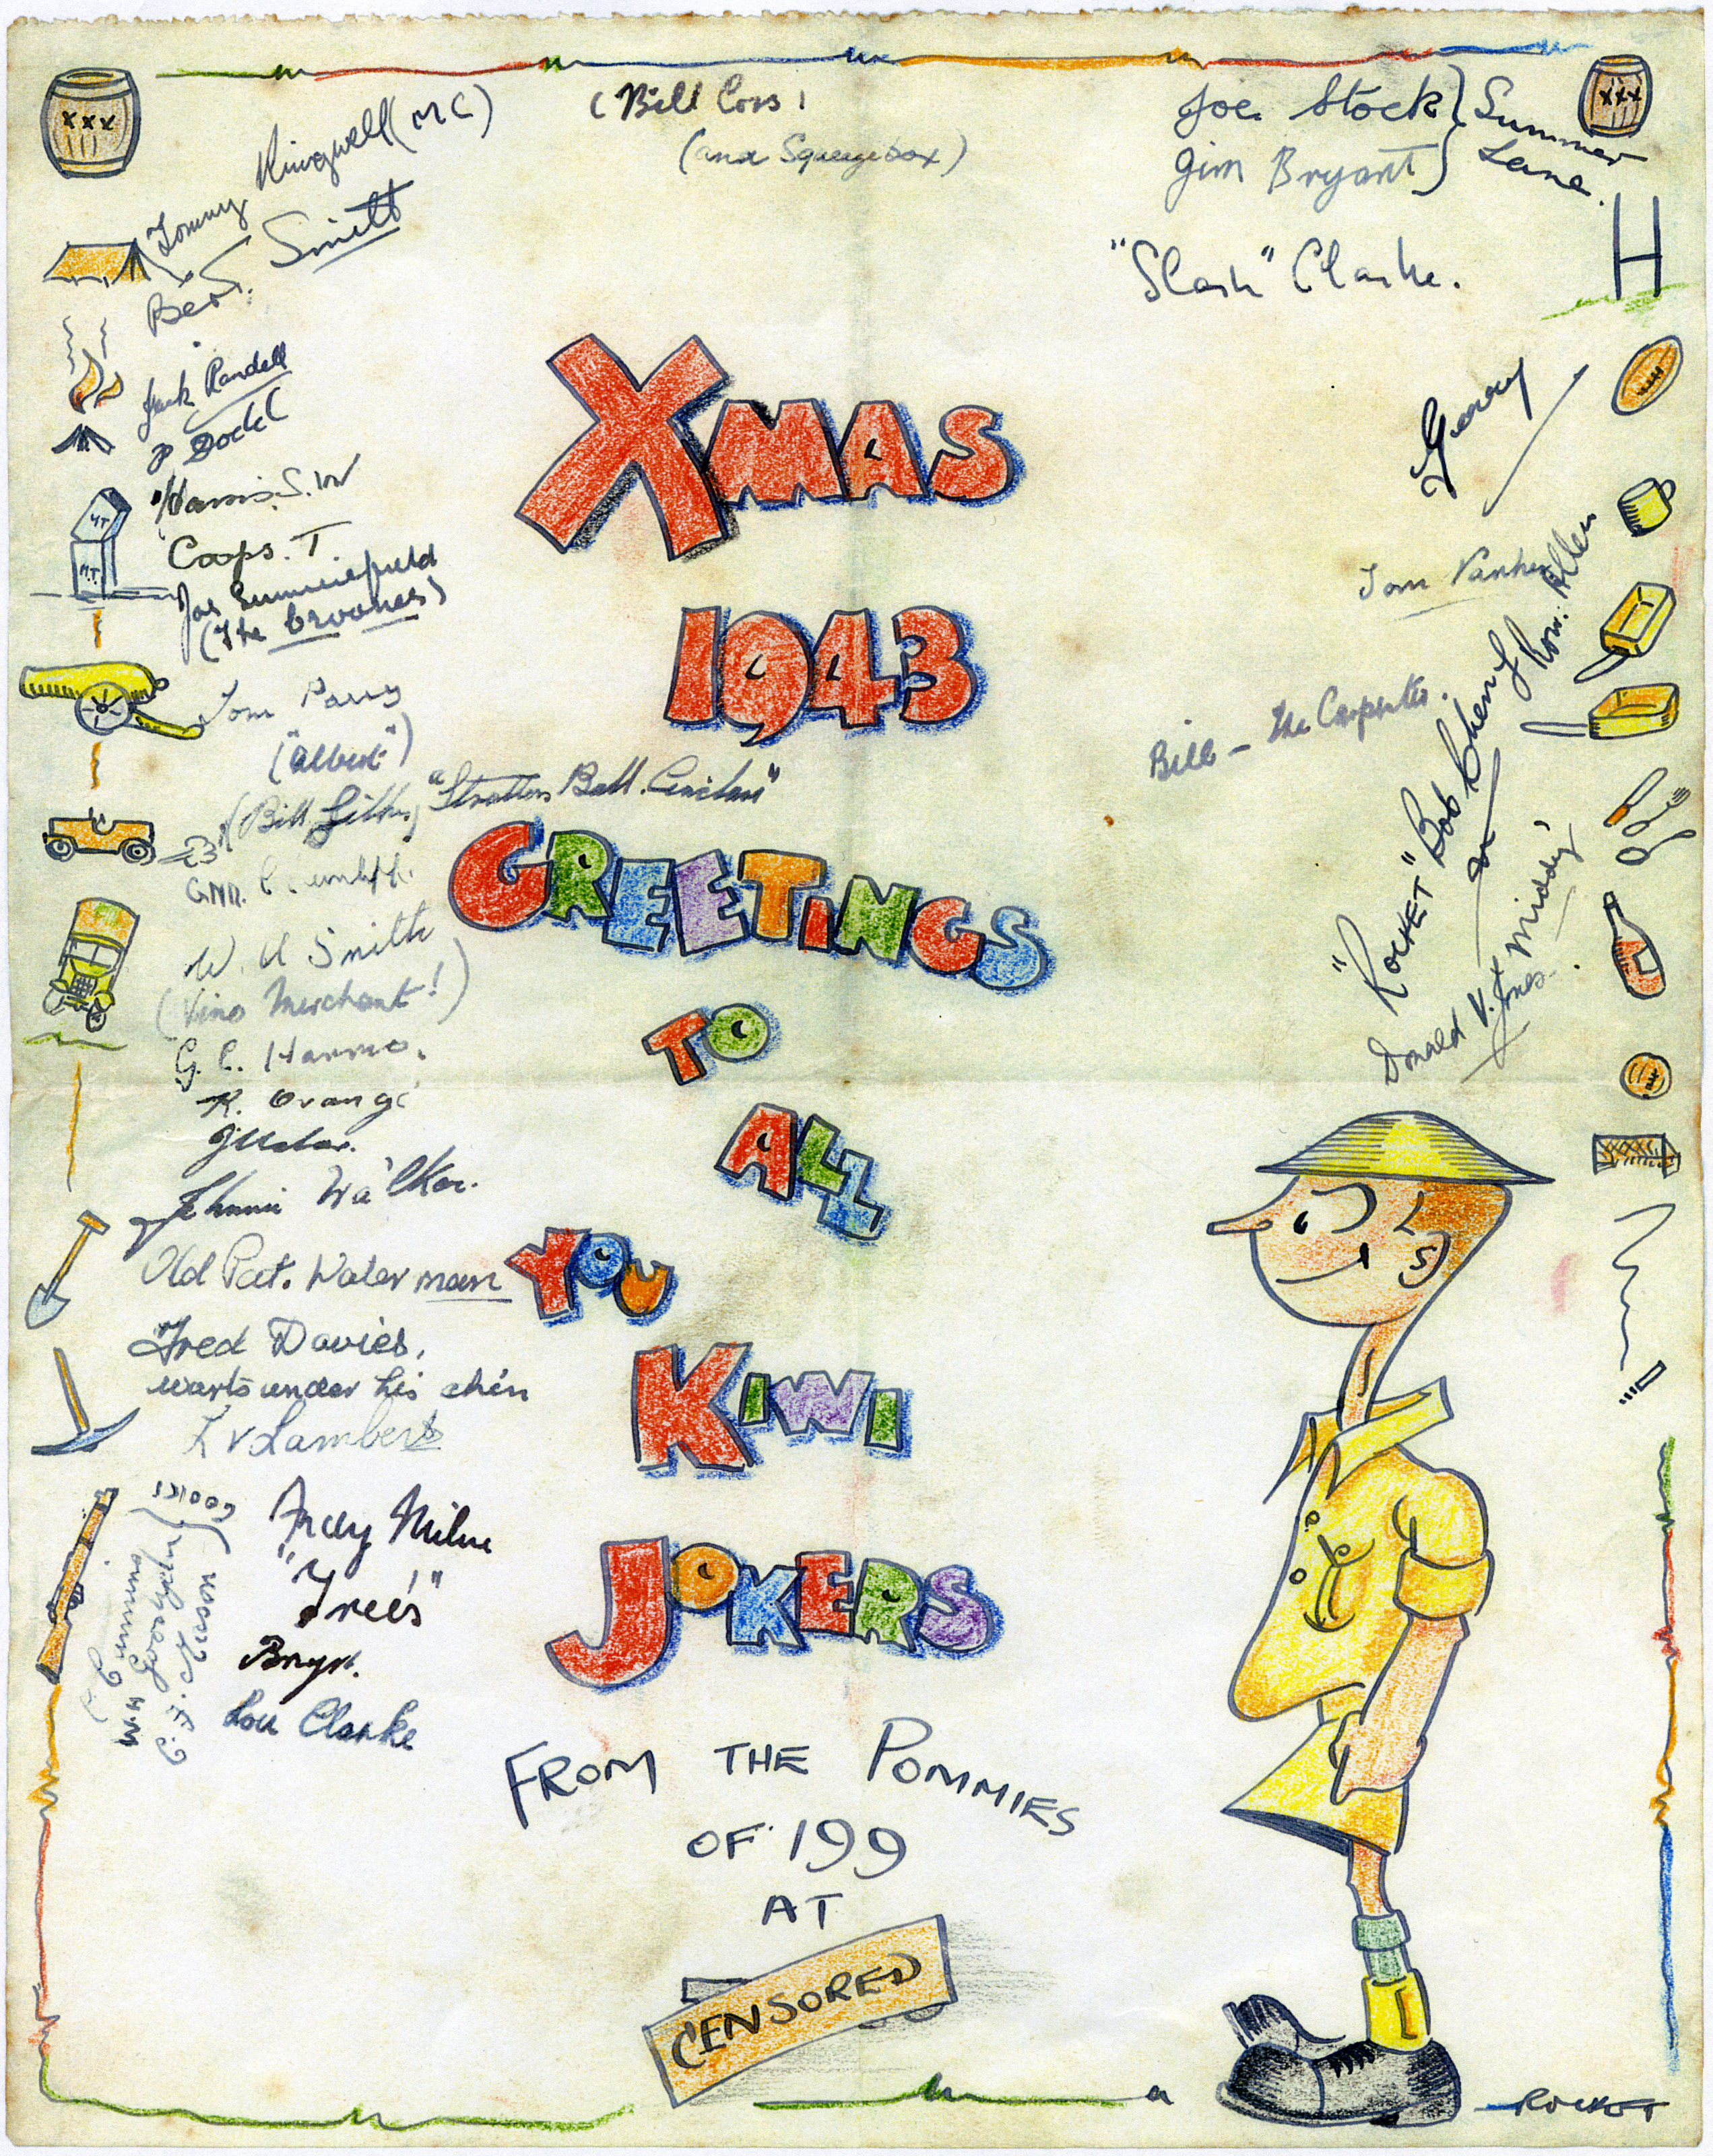 XXX
XXX
Tommy Kingwell (MC)
Bert. Smith
(Bill
(and Squeezebox)
Joe. Stock } Summer
Jim Bryant } Lane.
"Slash" Clarke.
H
Jack Randell
P Dodd
Harris. S. W
Coops. T.
MT
M.T.
Joe Summerfield
(The Crooner)
Gerry
XMAS
1943
Tom
Ron. Allen
Tom Parry
("Albert")
Bill – The Carpenter.
(Bill "Strattons Ball.
GNR.
"ROCKET" Bob
Donald V. Jones.
"Middy"
W. H Smith
(Vino Merchant!)
G. C.
R. Orange
Johnnie Walker.
Old Pat. Waterman
Fred Davies,
warts under his chin
L V Lambert
GREETINGS
TO
ALL
YOU
KIWI
JOKERS
Andy Milne
"Tree's"
Lou Clarke
COOKS
Cumming
W.H
Mason
FROM THE POMMIES
OF 199
AT
CENSORED
ROCKET